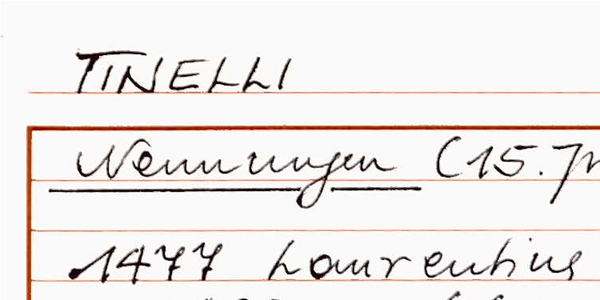 TINELLI
Nennungen (15.
1477 Laurentius